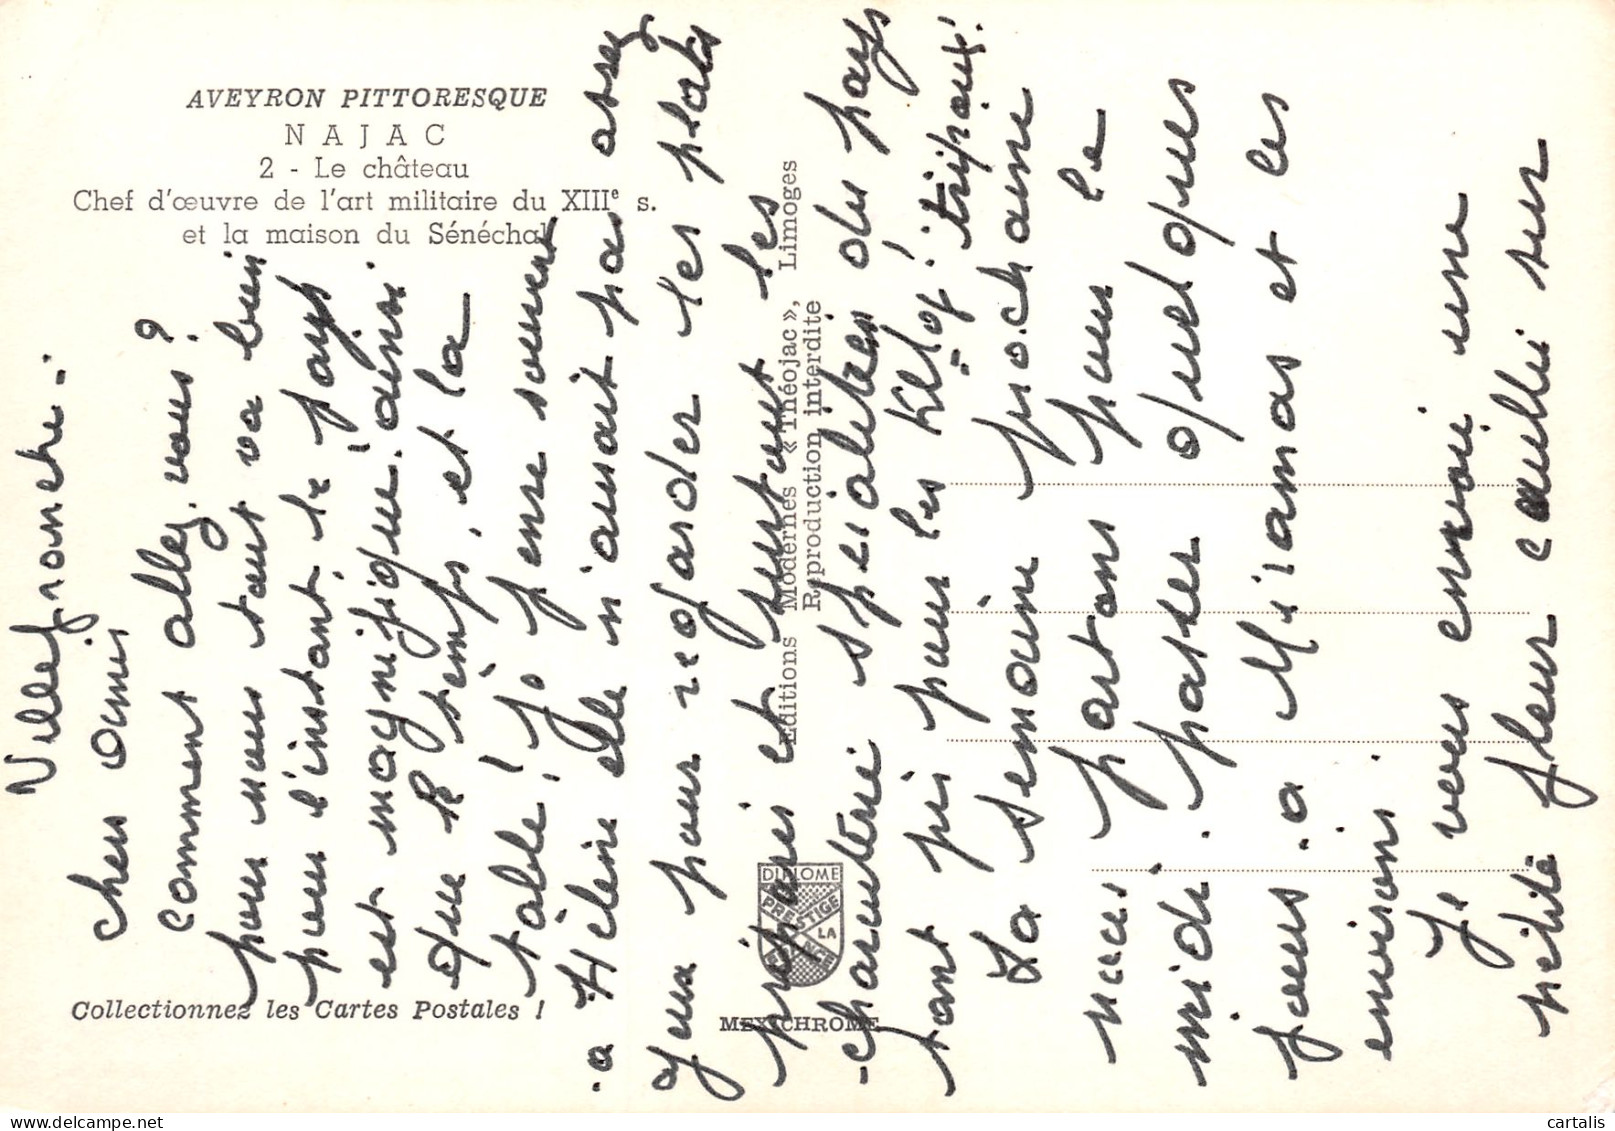 AVEYRON PITTORESQUE
NAJAC
2 - Le château
Chef d'œuvre de l'art militaire du XIIIe s.
et la maison du Sénéchal
Collectionnez les Cartes Postales !
Editions Modernes « Théojac », Limoges
Reproduction interdite
DIPLOME
PRESTIGE
DE LA
FRANCE
MEXICHROME
Villefranche.-
Chers amis
Comment allez.vous ?
pour nous tout va bien
pour l'instant le pays
est magnifique.ainsi
que le temps, et la
table ! Je pense souvent
a Hélène elle n'aurait pas assez
yeux pour regarder les plats
préparés et surtout les
charcuterie spécialités du pays
tant pis pour les Kilog ! "tripoux"!
La semaine prochaine
nous partons pour le
midi. passer quelques
jours.a Miramas et les
environs.
Je vous envoie une
petite fleur cueilli sur
cartalis